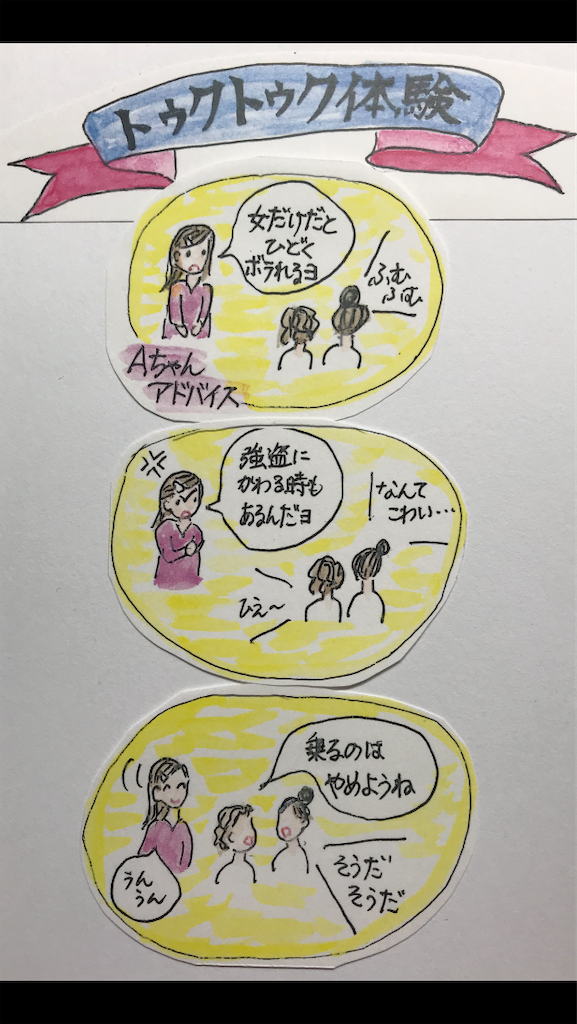 トゥクトゥク体験
女だけだと
ひどく
ボラれるヨ
ふむ
ふむ
Aちゃん
アドバイス
強盗に
かわる時も
あるんだヨ
なんて
こわい…
ひえ〜
乗るのは
やめようね
うん
うん
そうだ
そうだ